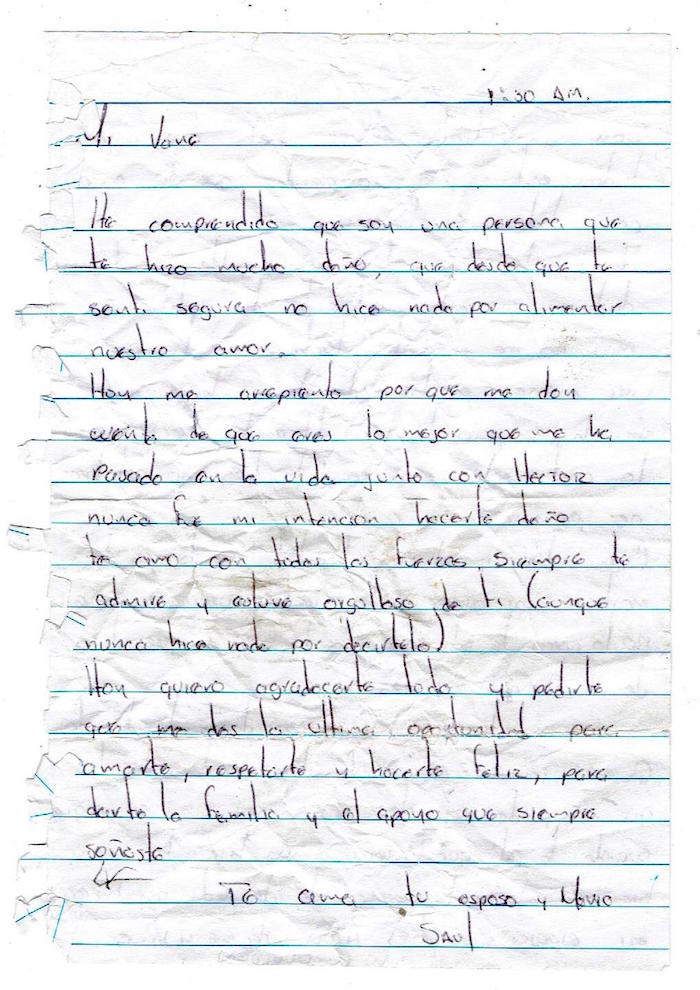 1:30 AM.
Mi Vane
He comprendido que soy una persona que
te hizo mucho daño, que desde que te
senti segura no hice nada por alimentar
nuestro amor.
Hoy me arrepiento por que me doy
cuenta de que eres lo mejor que me ha
Pasado en la vida junto con HECTOR
nunca fue mi intencion hacerte daño
te amo con todas las fuerzas, siempre te
admire y estuve orgulloso de ti (aunque
nunca hice nada por decirtelo)
Hoy quiero agradecerte todo y pedirte
que me des la ultima oportunidad para
amarte, respetarte y hacerte feliz, para
darte la familia y el apoyo que siempre
soñaste
Te ama tu esposo y Novio
SAUl